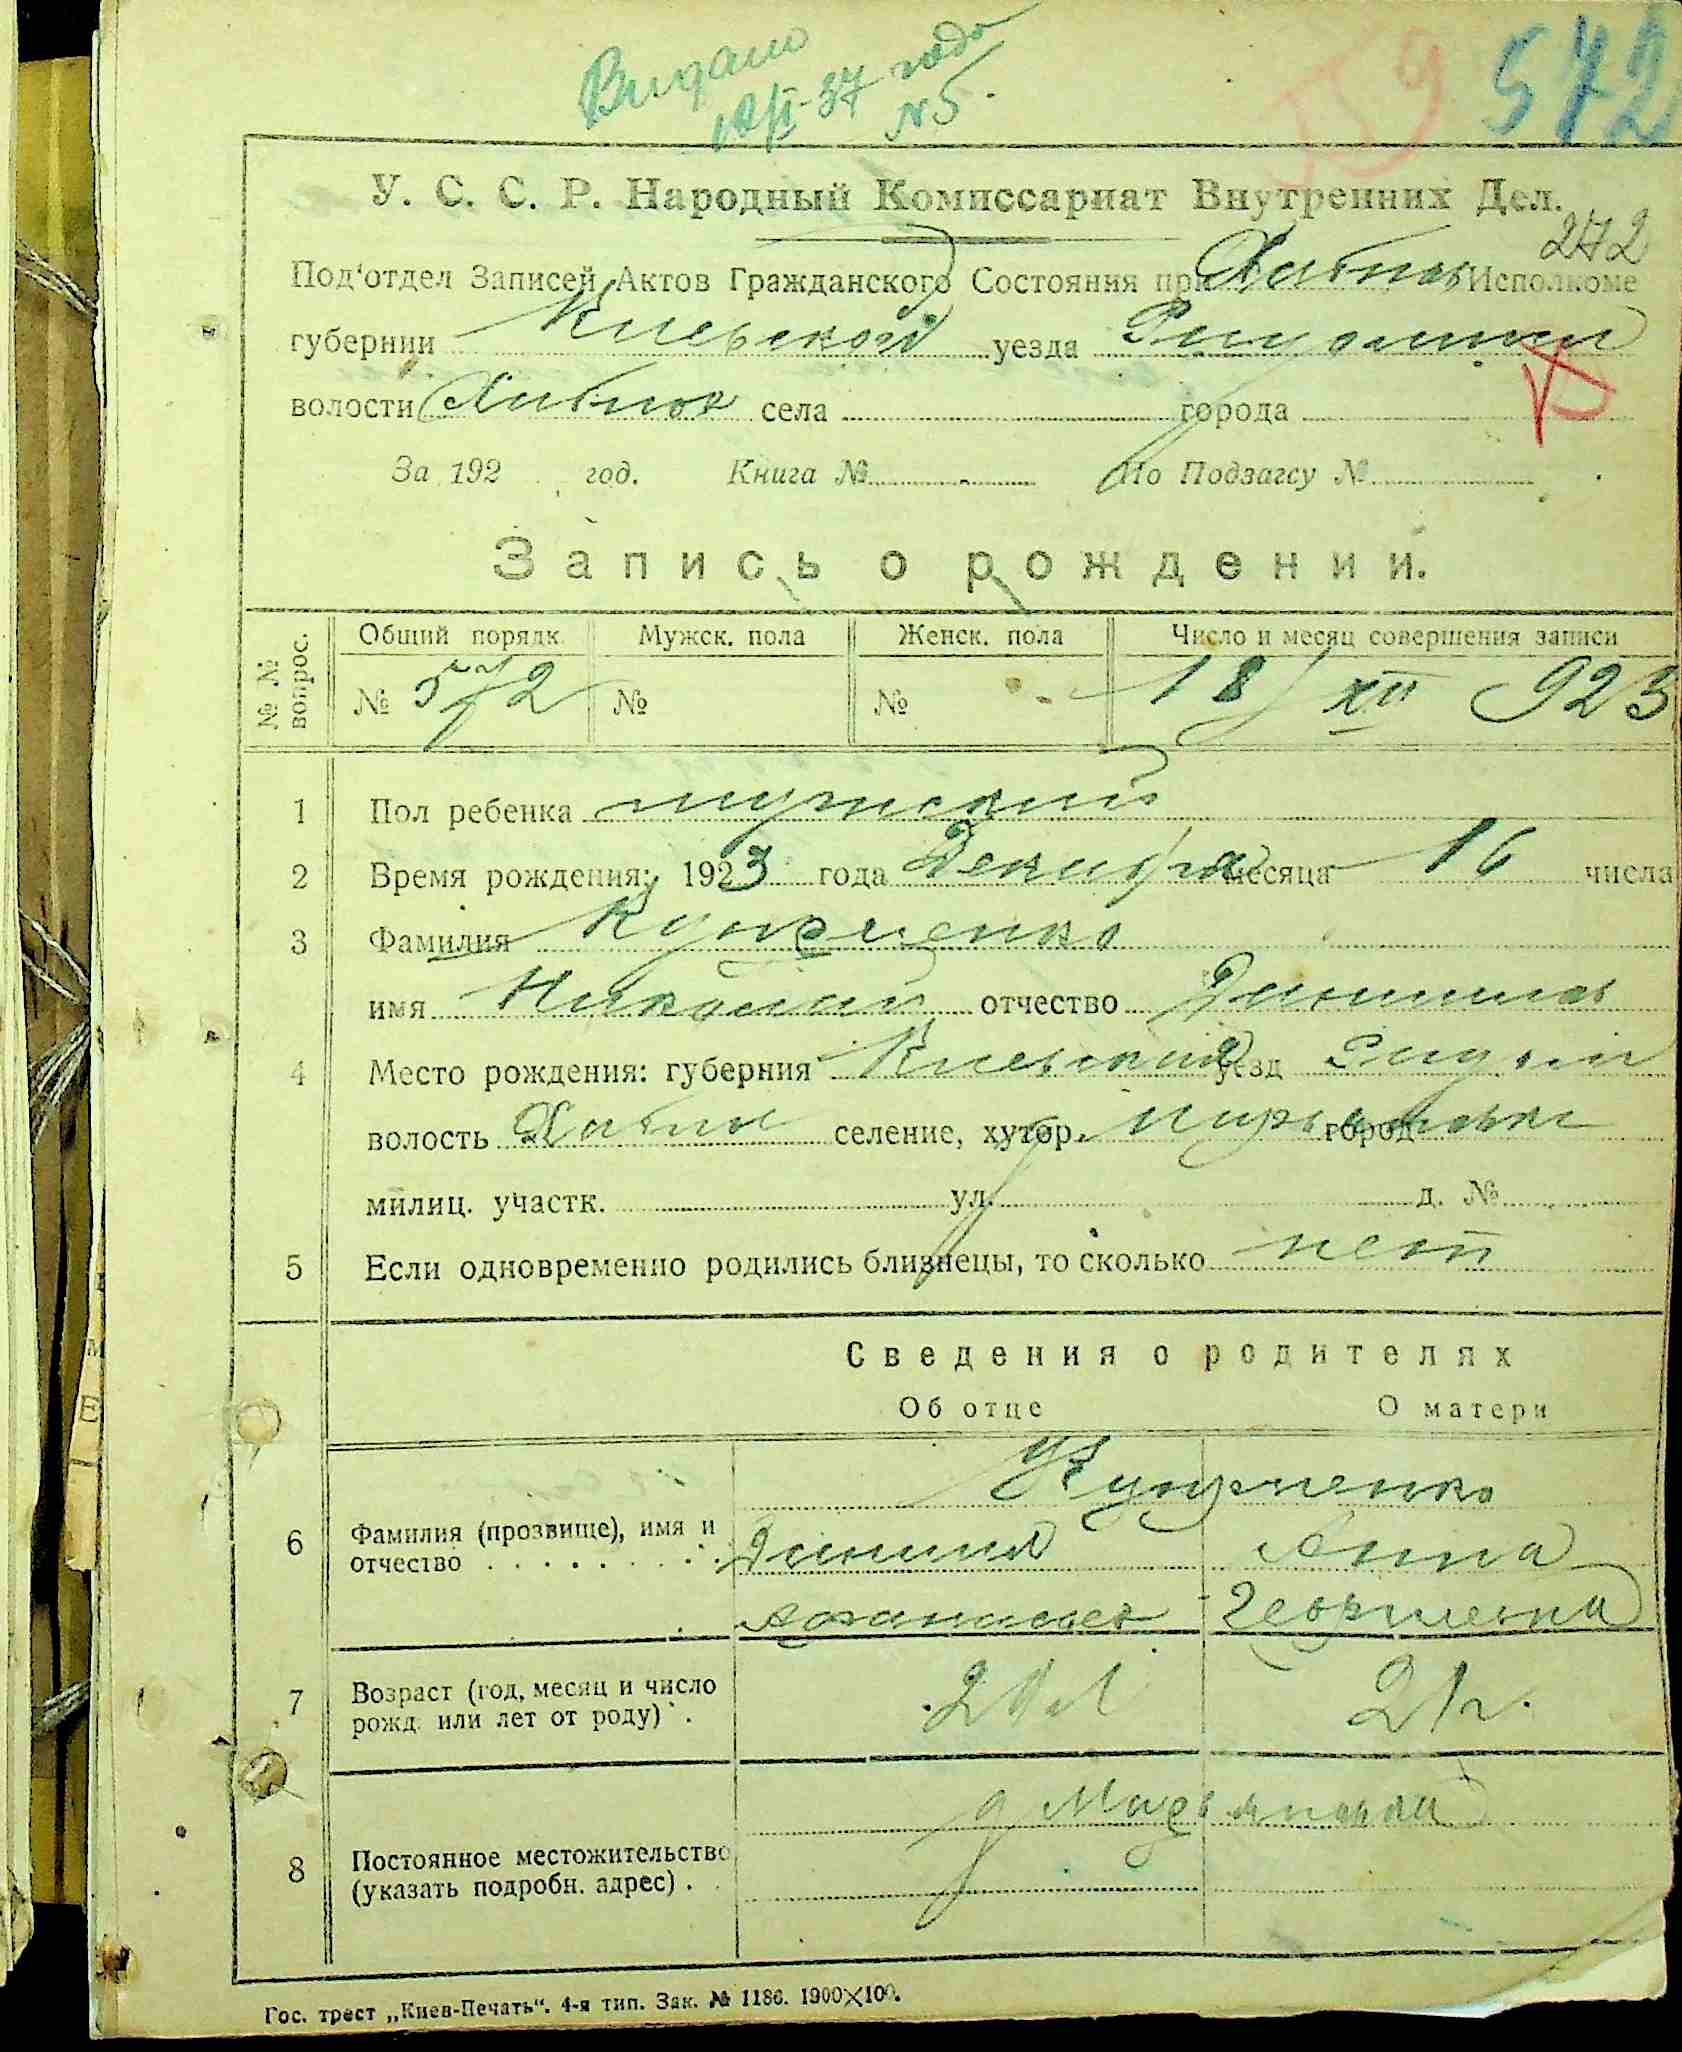 Видано
-37 года
№5.
59 572
У. С. С. Р. Народный Комиссариат Внутренних Дел.
272
Под'отдел Записей Актов Гражданского Состояния при Исполкоме
губернии Киевской уезда
волости села города
За 192 год. Книга № По Подзагсу №
Запись о рождении.
№ № вопрос. Общий порядк. Мужск. пола Женск. пола Число и месяц совершения записи
№ 572 № № 18/XII 923
1 Пол ребенка мужской
2 Время рождения: 1923 года Декабря месяца 16 числа
3 Фамилия
имя Николай отчество Данилов
4 Место рождения: губерния Киевская уезд
волость селение, хутор, город
милиц. участк. ул. д. №
5 Если одновременно родились близнецы, то сколько нет
Сведения о родителях
Об отце О матери
6 Фамилия (прозвище), имя и
отчество Даниил Анна
Афанасьев Георгиевна
7 Возраст (год, месяц и число
рожд. или лет от роду) 21г.
8 Постоянное местожительство
(указать подробн. адрес)
Гос. трест „Киев-Печать“. 4-я тип. Зак. № 1186. 1900×100.